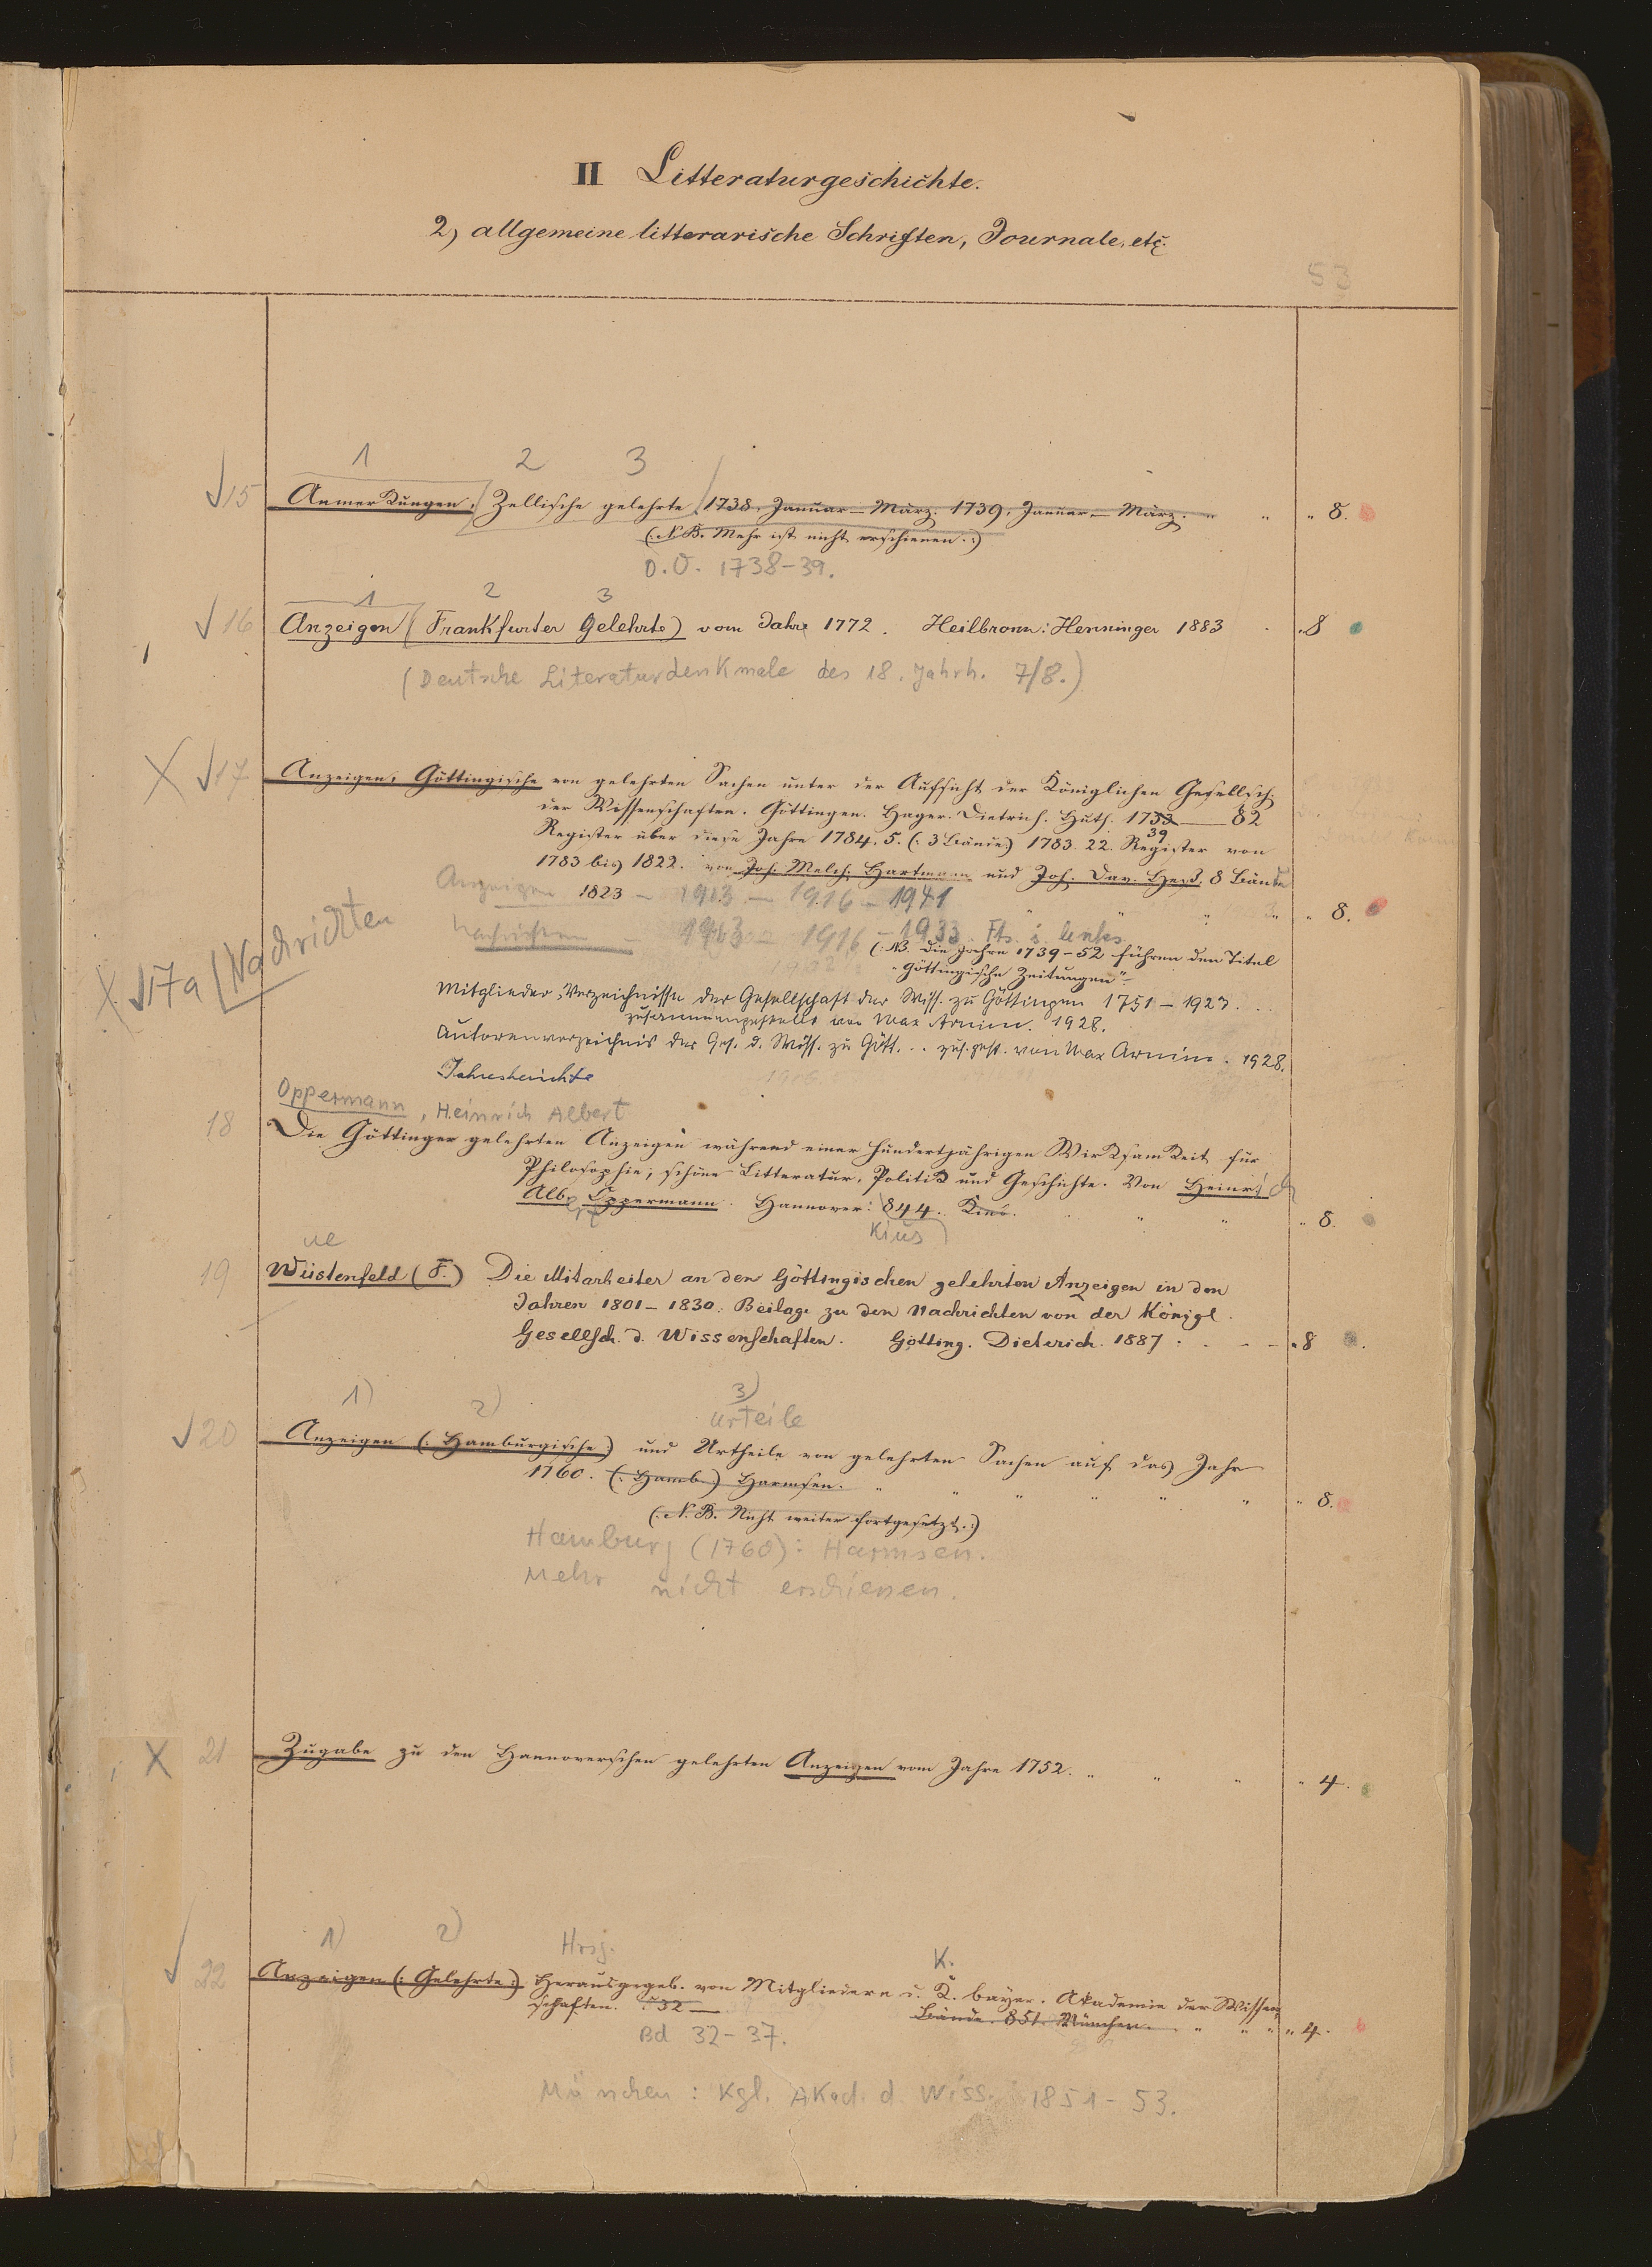 II Litteraturgeschichte.
2) allgemeine litterarische Schriften, Journale, etc.
53
1 2 3
15 Anmerkungen, Zellische gelehrte 1738. Januar – März. 1739. Januar – März. " " " 8.
(: N.B. Mehr ist nicht erschienen. :)
O.O. 1738-39.
1 2 3
16 Anzeigen (Frankfurter Gelehrte) vom Jahre 1772. Heilbronn: Henninger 1883 " 8
(Deutsche Literaturdenkmale des 18. Jahrh. 7/8.)
X 17 Anzeigen, Göttingische von gelehrten Sachen unter der Aufsicht der Königlichen Gesellsch.
der Wissenschaften. Göttingen. Hager. Dietrich. Huth. 1753 — 82
39
Register über diese Jahre 1784. 5. (: 3 Bände:) 1783. 22. Register von
1783 bis 1822. von Joh. Melch. Hartmann und Joh. Dav. Heß. 8 Bände
Anzeigen 1823 – 1913 – 1916 – 1941 " " " " 8.
Nachrichten – 1916 – 1933 Fts. s. links
(: NB. Die Jahre 1739-52 führen den Titel
"Göttingische Zeitungen"
X 17a Nachrichten
Mitglieder-Verzeichnisse der Gesellschaft der Wiss. zu Göttingen 1751 – 1927. . .
zusammengestellt von Max Arnim. 1928.
Autorenverzeichnis der Ges. d. Wiss. zu Gött. . . zus.gest. von Max Arnim. 1928.
Jahresberichte
Oppermann, Heinrich Albert
18 Die Göttinger gelehrten Anzeigen während einer hundertjährigen Wirksamkeit für
Philosophie, schöne Litteratur, Politik und Geschichte. Von Heinrich
Alb. Oppermann. Hannover: 844. Kius. " " " 8.
Kius
ue
19 Wüstenfeld (F.) Die Mitarbeiter an den Göttingischen gelehrten Anzeigen in den
Jahren 1801 – 1830: Beilage zu den Nachrichten von der Königl.
Gesellsch. d. Wissenschaften. Götting. Dieterich. 1887 : - - - " 8
1) 2) 3)
Urteile
20 Anzeigen (: Hamburgische:) und Urtheile von gelehrten Sachen auf das Jahr
1760. (: Hamb.:) Harmsen. " " " " " " " 8.
(: N.B. Nicht weiter fortgesetzt. :)
Hamburg (1760): Harmsen.
Mehr nicht erschienen.
X 21 Zugabe zu den Hannoverschen gelehrten Anzeigen vom Jahre 1752. " " " " 4.
1) 2) Hrsg. K.
22 Anzeigen (: Gelehrte:) Herausgegeb. von Mitgliedern d. K. bayer. Akademie der Wissen
schaften. 32 — Bände. 851. München. " " " " 4.
Bd 32-37.
München: Kgl. Akad. d. Wiss. 1851-53.